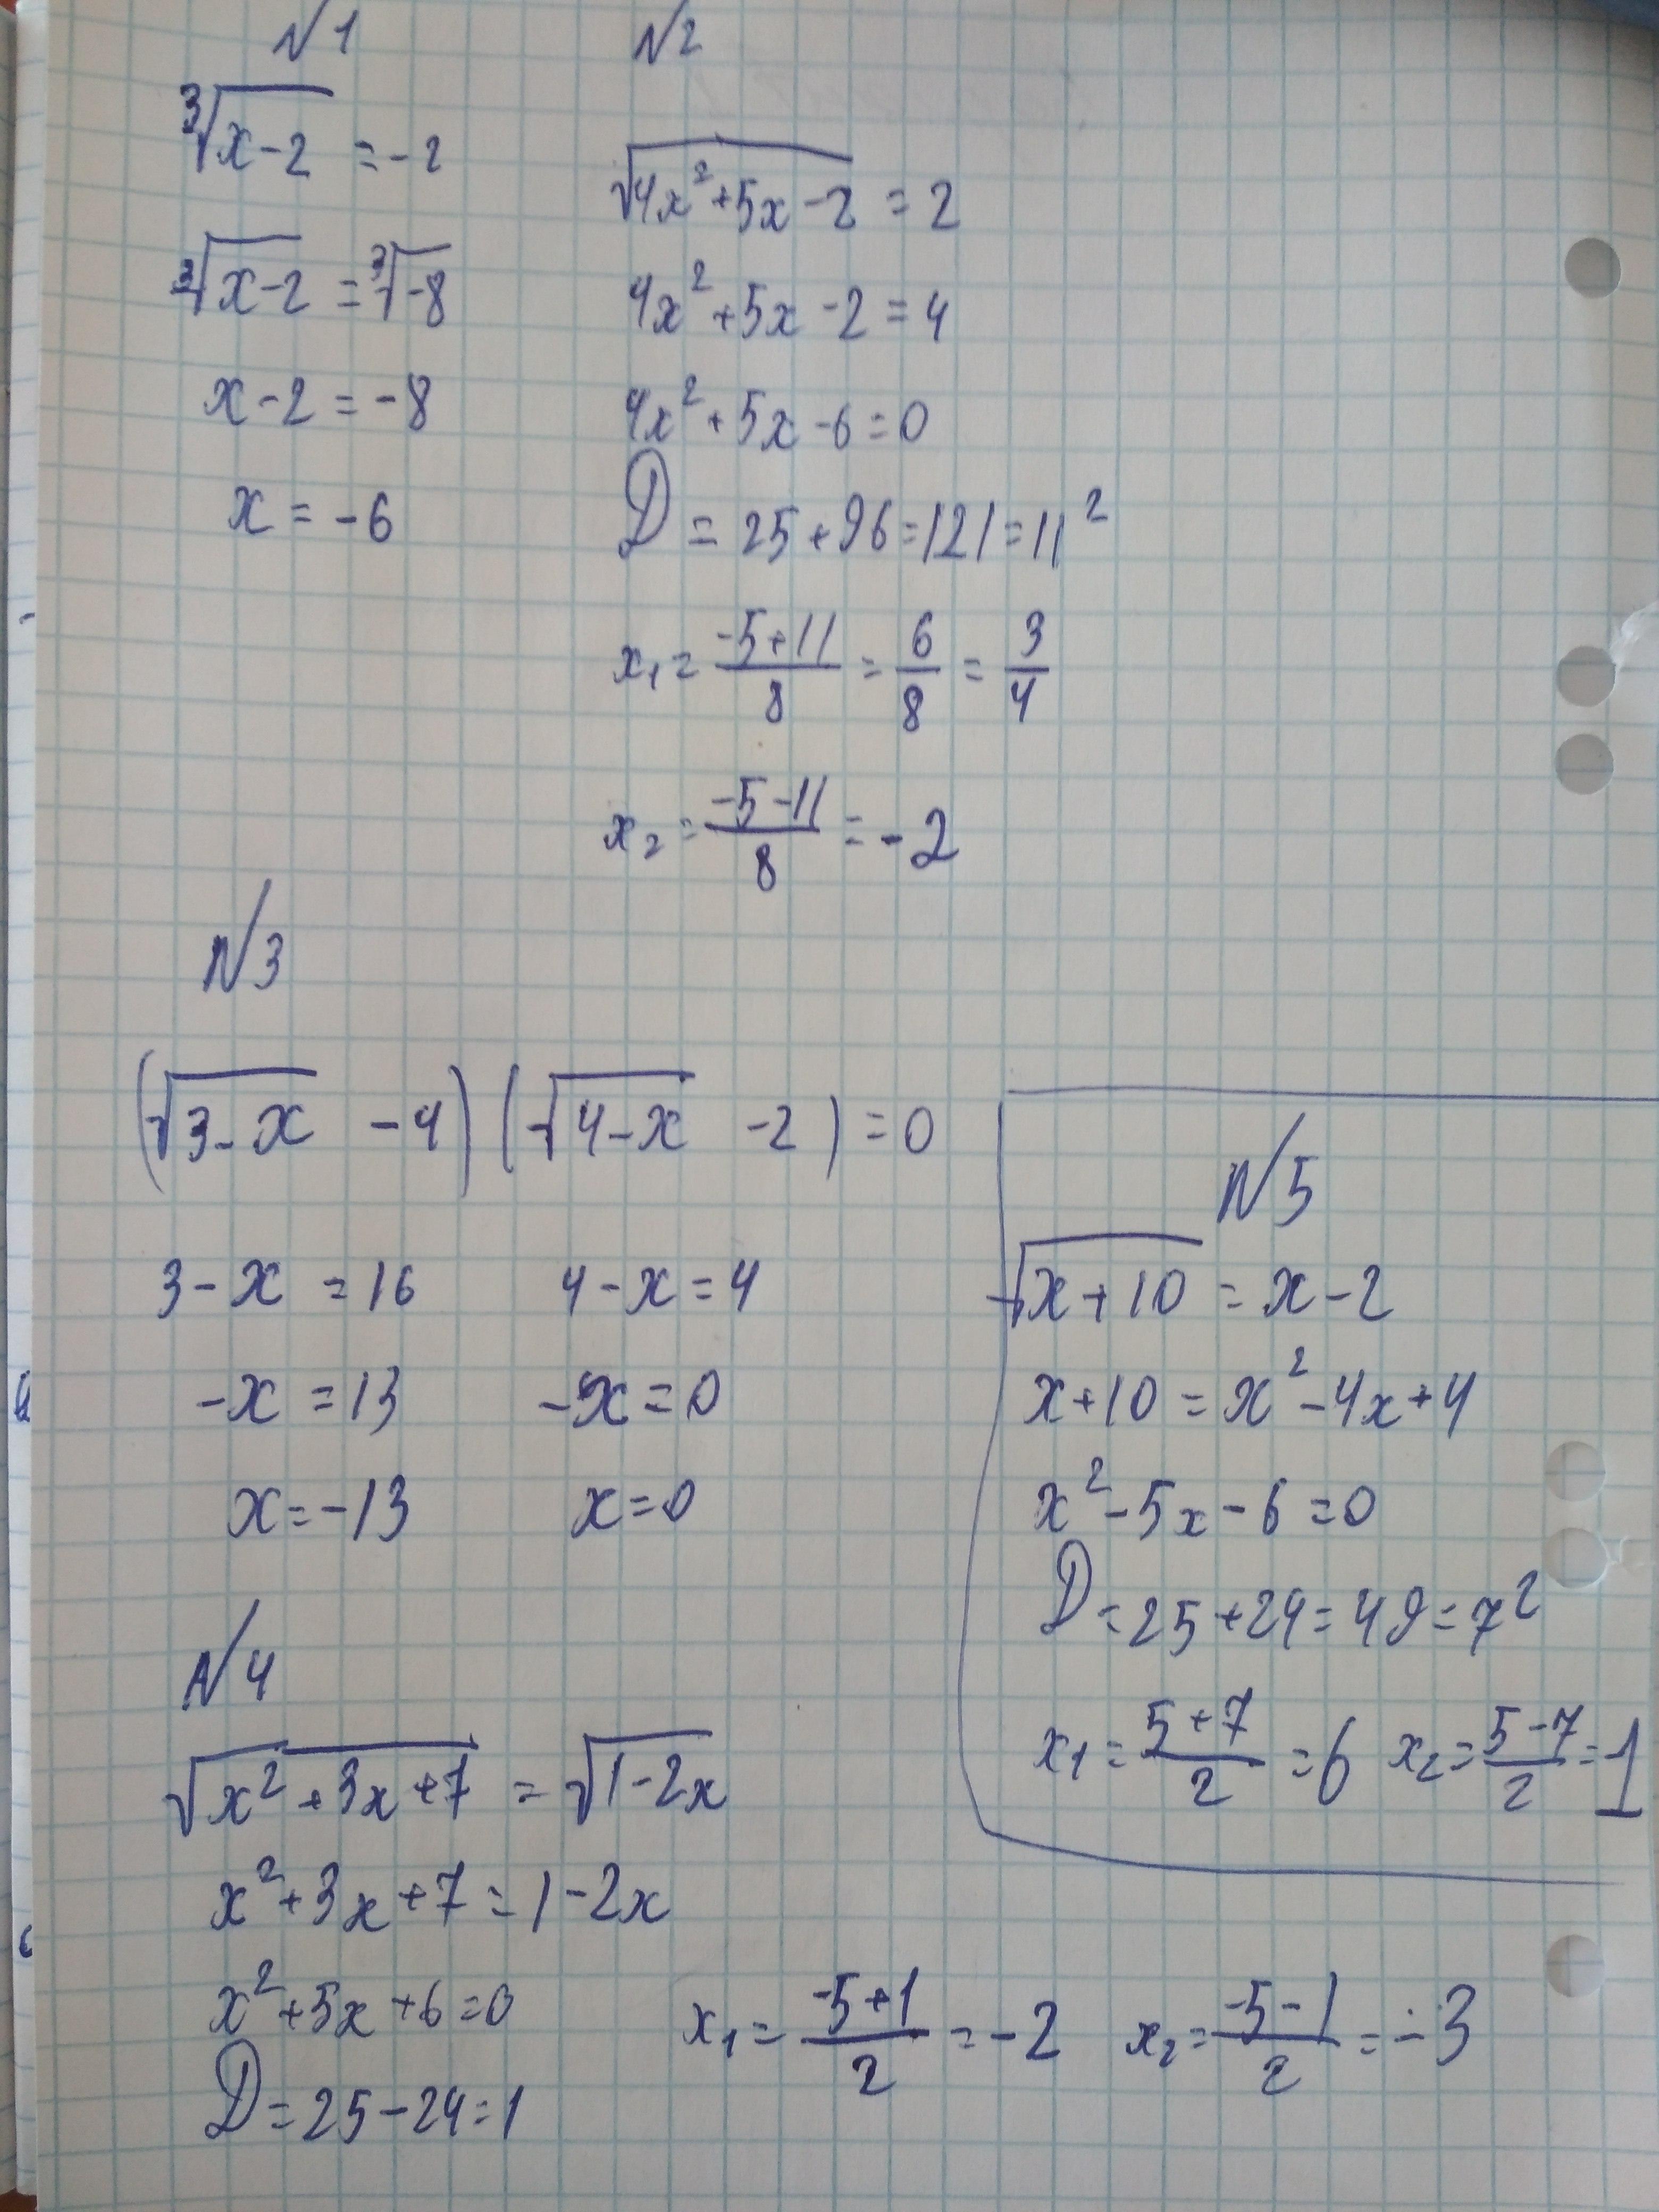 N1
∛(x-2) = -2
∛(x-2) = ∛(-8)
x-2 = -8
x = -6
N2
√(4x²+5x-2) = 2
4x²+5x-2 = 4
4x²+5x-6=0
D = 25+96=121=11²
x₁= (-5+11)/8 = 6/8 = 3/4
x₂= (-5-11)/8 = -2
N3
(√(3-x) -4)(√(4-x) -2)=0
3-x =16 4-x=4
-x =13 -x=0
x=-13 x=0
N4
√(x²+3x+7) = √(1-2x)
x²+3x+7=1-2x
x²+5x+6=0
D=25-24=1
x₁= (-5+1)/2 =-2 x₂= (-5-1)/2 =-3
N5
√(x+10) = x-2
x+10 = x²-4x+4
x²-5x-6=0
D=25+24=49=7²
x₁= (5+7)/2 =6 x₂= (5-7)/2 =1